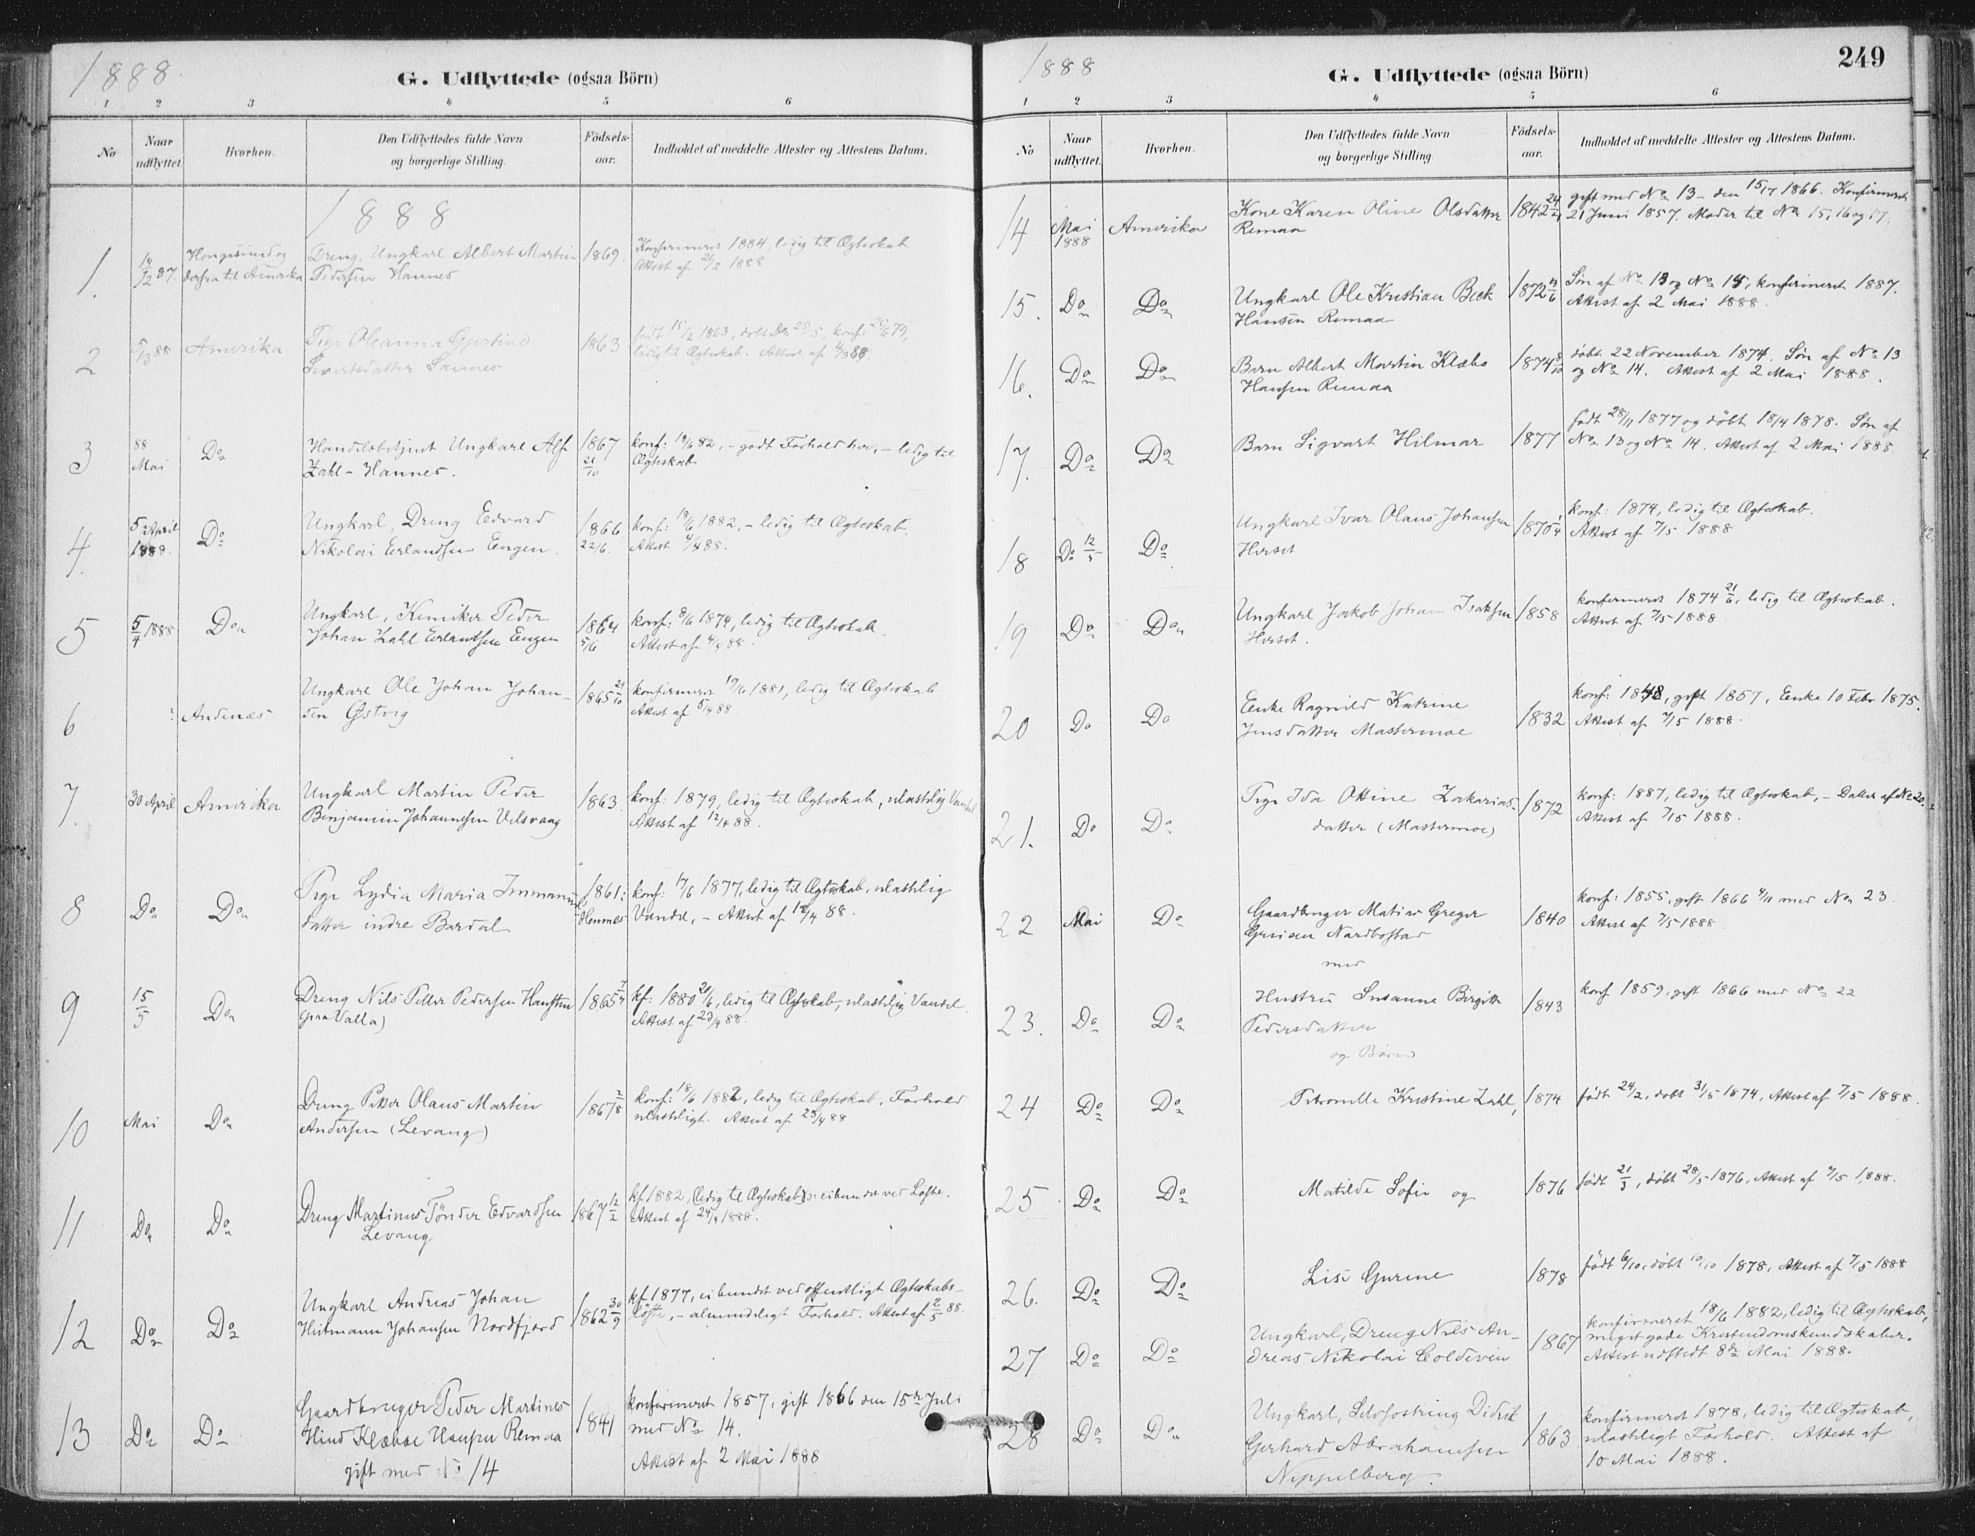 1888
G. Udflyttede (ogsaa Börn)
1 2 3 4 5 6
No
Naar udflyttet.
Hvorhen.
Den Udflyttedes fulde Navn og borgerlige Stilling.
Födsels-aar.
Indholdet af meddelte Attester og Attestens Datum.
1888
1. 14/12 87. Haugesund og
derfra til Amerika
Dreng, Ungkarl Albert Martin
Pedersen Hannes
1869.
Konfirmeret 1884, ledig til Ægteskab
Attest af 21/2 1888
2 5/3 88 Amerika
Pige Oleanna Gjertine
Sivertsdatter Sannes
1863
født 15/2 1863, døbt 25/5, konf: 29/6 79,
ledig til Ægteskab. Attest af 4/3 88.
3 88
Mai
Do
Handelsbetjent Ungkarl Alf
Zahl - Hannes.
1867
21/10
konf: 19/6 82, - godt Forhold her, - ledig til
Ægteskab
4. 5 April
1888.
Do
Ungkarl, Dreng Edvard
Nikolai Erlandsen Engen.
1866
22/6.
konf: 18/6 1882, - ledig til Ægteskab.
Attest 4/4 88.
5 5/4 1888 Do
Ungkarl, Kemiker Peder
Johan Zahl Erlandsen Engen
1864
5/6
konf: 8/6 1874, ledig til Ægteskab.
Attest af 4/4 88.
6 Andenæs
Ungkarl Ole Johan Johan-
sen Østvig
1865 29/10
konfirmeret 19/6 1881, ledig til Ægteskab
Attest af 5/4 88
7. 30 April Amerika
Ungkarl Martin Peder
Benjamin Johannesen Velsvaag
1863
konf: 1879, ledig til Ægteskab, ulastelig Vandel
Attest af 12/4 88.
8 Do Do
Pige Lydia Maria Immanuels
datter indre Bardal
1861:
Hemnes
konf: 17/6 1877, ledig til Ægteskab, ulastelig
Vandel, - Attest af 12/4 88.
9 15/5 Do
Dreng Nils Peter Pedersen Hansten
(paa Valla)
1865 7/4
kf: 1880 20/6, ledig til Ægteskab, ulastelig Vandel.
Attest af 23/4 88.
10 Mai Do
Dreng Peter Olaus Martin
Andersen (Levang)
1867 2/8
konf: 18/6 1882, ledig til Ægteskab, Forhold
ulasteligt. Attest af 23/4 88
11 Do Do
Dreng Martinus Tönder Edvardsen
Levang
1867 12/2
kf. 1882, (ledig til Ægteskab) ei bunden ved Løfte.
Attest af 24/4 1888.
12 Do Do
Ungkarl Andreas Johan
Heitmann Johansen Nordfjord
1862 30/9
kf. 1877, ei bundet ved offentligt Ægteskabs-
løfte, - almindeligt Forhold. Attest af 2/5 88.
13 Do Do
Gaardbruger Peder Martines
Hind Klæboe Hansen Remaa
gift med No 14
1841
konfirmeret 1857, gift 1866 den 15de Juli
med No 14.
Attest af 2 Mai 1888
1888
G. Udflyttede (ogsaa Börn)
249
1 2 3 4 5 6
No
Naar udflyttet.
Hvorhen.
Den Udflyttedes fulde Navn og borgerlige Stilling.
Födsels-aar.
Indholdet af meddelte Attester og Attestens Datum.
14 Mai
1888
Amerika
Kone Karen Oline Olsdatter
Remaa
1842
gift med No 13 - den 15/7 1866. Konfirmeret
21 Juni 1857. Moder til No 15, 16 og 17.
15. Do Do
Ungkarl Ole Kristian Beck
Hansen Remaa
1872
Søn af No 13 og No 14, konfirmeret 1887.
Attest af 2 Mai 1888.
16. Do Do
Barn Albert Martin Klæbo
Hansen Remaa
1874 8/10
døbt 22 November 1874. Søn af No 13
og No 14. Attest af 2 Mai 1888.
17. Do Do
Barn Sigvart Hilmar
1877
født 28/11 1877 og døbt 18/4 1878. Søn af
No 13 og No 14. Attest af 2 Mai 1888.
18 Do 12/5 Do
Ungkarl Ivar Olaus Johansen
Herset
1870 1/4
konf: 1874, ledig til Ægteskab.
Attest af 7/5 1888
19 Do Do
Ungkarl Jakob Johan Isaksen
Herset.
1858
konfirmeret 1874 21/6, ledig til Ægteskab.
Attest af 7/5 1888.
20 Do Do
Enke Ragnild Katrine
Jensdatter Mastermoe
1832
konf: 1848, gift 1857, Enke 10 Febr 1875.
Attest af 7/5 1888.
21. Do Do
Pige Ida Ottine Zakarias-
datter (Mastermoe)
1872
konf: 1887, ledig til Ægteskab, - Datter af No 20.
Attest af 7/5 1888.
22 Mai Do
Gaardbruger Matias Greger
Gruian Nordbostad
med
1840
konf: 1855, gift 1866 4/11 med No 23.
Attest af 7/5 1888.
23. Do Do
Hustru Susanne Birgitte
Pedersdatter
og Børn
1843
konf 1859, gift 1866 med No 22
24 Do Do
Petronelle Kristine Zahl,
1874
født 24/2, døbt 31/5 1874, Attest af 7/5 1888.
25 Do Do
Matilde Sofie og
1876
født 21/3, døbt 28/5 1876, Attest af 7/5 1888.
26. Do Do
Lise Gurine
1878
født 6/10, døbt 1878, Attest af 7/5 1888
27 Do Do
Ungkarl, Dreng Nils An-
dreas Nikolai Coldevin
1867
konfirmeret 18/6 1882, ledig til Ægteskab,
meget gode Kristendomskundskaber.
Attest udstedt 8de Mai 1888.
28 Do Do
Ungkarl, Selvfostring Didrik
Gerhard Abrahamsen
Nippelberg.
1863
konfirmeret 1878, ledig til Ægteskab,
ulasteligt Forhold. Attest af
10 Mai 1888.